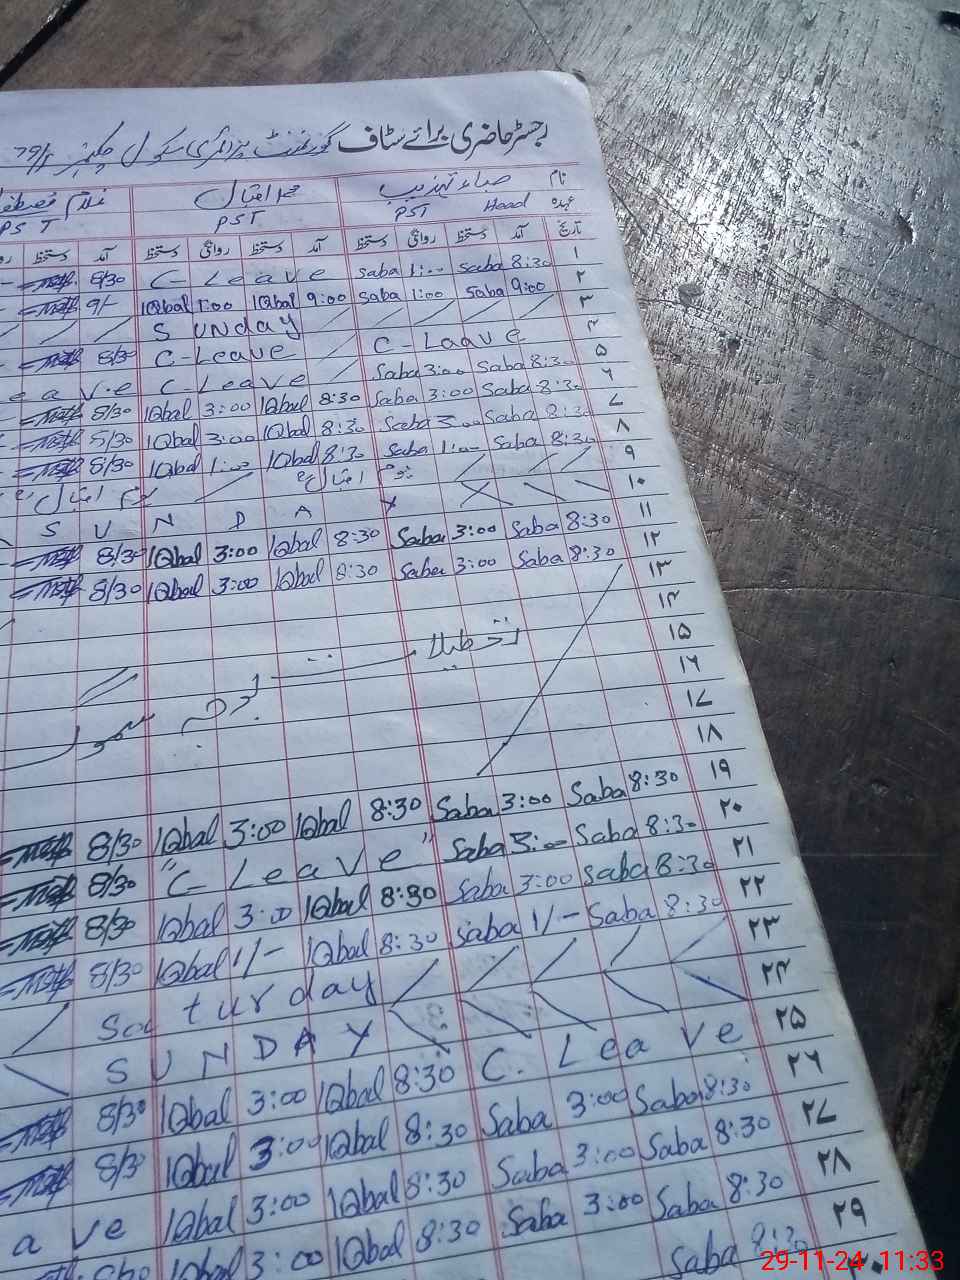 رجسٹر حاضری برائے سٹاف گورنمنٹ پرائمری سکول
نام صباء تہذیب محمد اقبال غلام مصطفے
عہدہ Head PST PST PST
تاریخ آمد دستخط روانگی دستخط آمد دستخط روانگی دستخط آمد
۱ 8:30 Saba 1:00 Saba C-Leave 8/30
۲ 9:00 Saba 1:00 Saba 9:00 IQbal 1:00 IQbal 9/-
۳ SUNday
۴ C-Laave C-Leave 8/30
۵ 8:30 Saba 3:00 Saba C-Leave eave
۶ 8:30 Saba 3:00 Saba 8:30 IQbal 3:00 IQbal 8/30
۷ 8:30 Saba 3:00 Saba 8:30 IQbal 3:00 IQbal 8/30
۸ 8:30 Saba 1:00 Saba 8:30 IQbal 1:00 IQbal 8/30
۹ یوم اقبال یوم اقبال
۱۰ SUNDAY
۱۱ 8:30 Saba 3:00 Saba 8:30 IQbal 3:00 IQbal 8/30
۱۲ 8:30 Saba 3:00 Saba 8:30 IQbal 3:00 IQbal 8/30
۱۳
۱۴
۱۵ تعطیلات بوجہ سموگ
۱۶
۱۷
۱۸
۱۹ 8:30 Saba 3:00 Saba 8:30 IQbal 3:00 IQbal 8/30
۲۰ 8:30 Saba 3:00 Saba "C-Leave" 8/30
۲۱ 8:30 Saba 3:00 Saba 8:30 IQbal 3:00 IQbal 8/30
۲۲ 8:30 Saba 1/- Saba 8:30 IQbal 1/- IQbal 8/30
۲۳ Saturday
۲۴ SUNDAY
۲۵ C. Leave 8:30 IQbal 3:00 IQbal 8/30
۲۶ 8:30 Saba 3:00 Saba 8:30 IQbal 3:00 IQbal 8/30
۲۷ 8:30 Saba 3:00 Saba 8:30 IQbal 3:00 IQbal ave
۲۸ 8:30 Saba 3:00 Saba 8:30 IQbal 3:00 IQbal
۲۹ 8:30 Saba
29-11-24 11:33